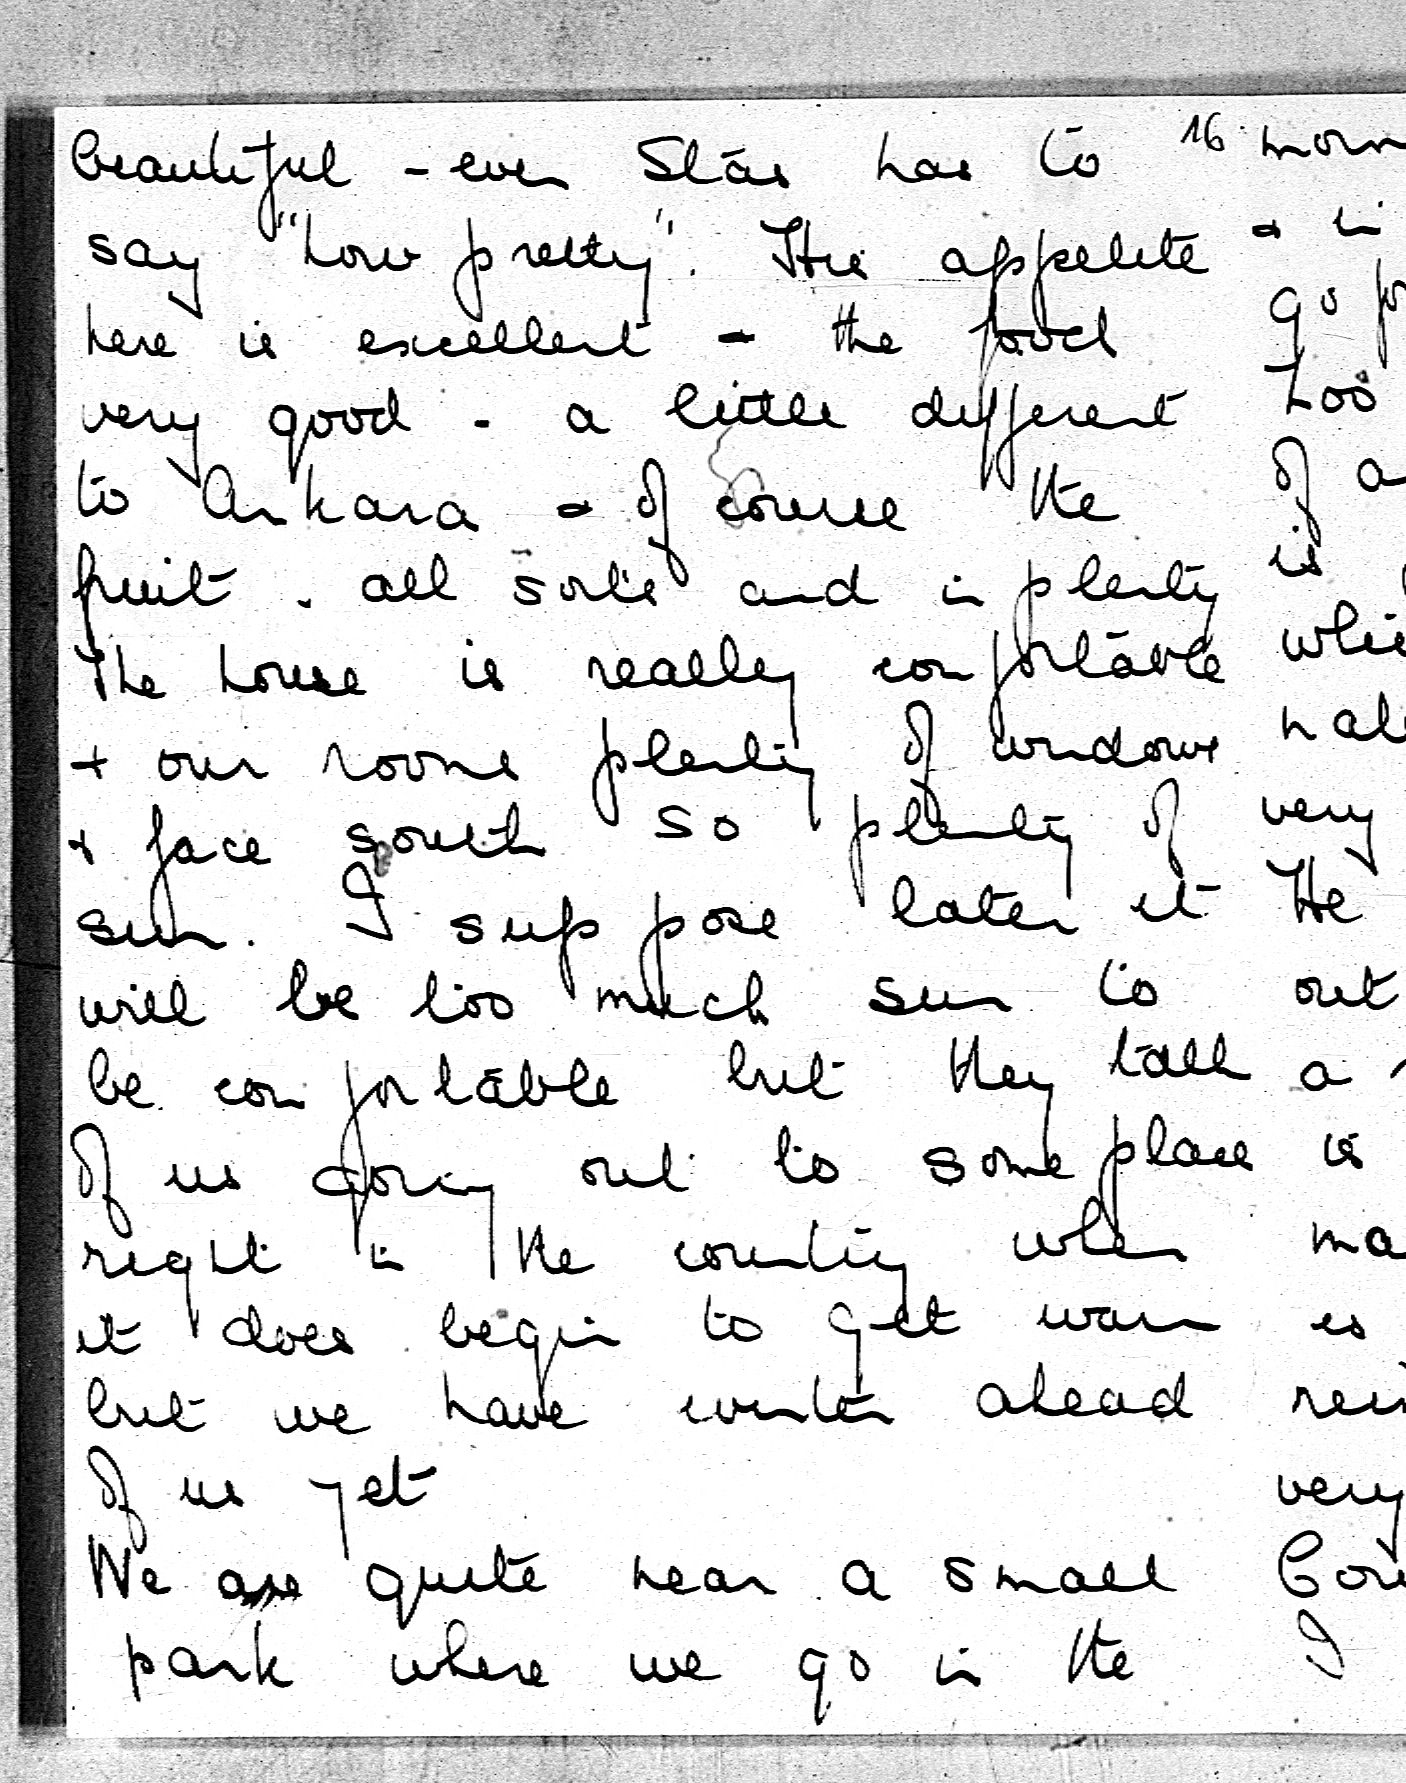 beautiful - even Stás has to
say "how pretty". His appetite
here is excellent - the food
very good - a little different
to Ankara - of course the
fruit - all sorts and in plenty
The house is really comfortable
+ our rooms plenty of windows
+ face south so plenty of
sun. I suppose later it
will be too much sun to
be comfortable but they talk
of us going out to some place
right in the country when
it does begin to get warm
but we have winter ahead
of us yet
We are quite near a small
park where we go in the
16
morn
+ in
go for
too
of a
is
whic
nat
very
He
out
a
is
ma
is
rei
very
I